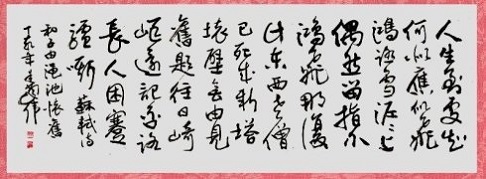 人生到處知
何似應似飛
鴻踏雪泥々上
偶然留指爪
鴻飛那復
計東西老僧
已死成新塔
壞壁無由見
舊題往日崎
嶇還記否路
長人困蹇
驢嘶 蘇軾詩
和子由澠池懷舊
丁亥年